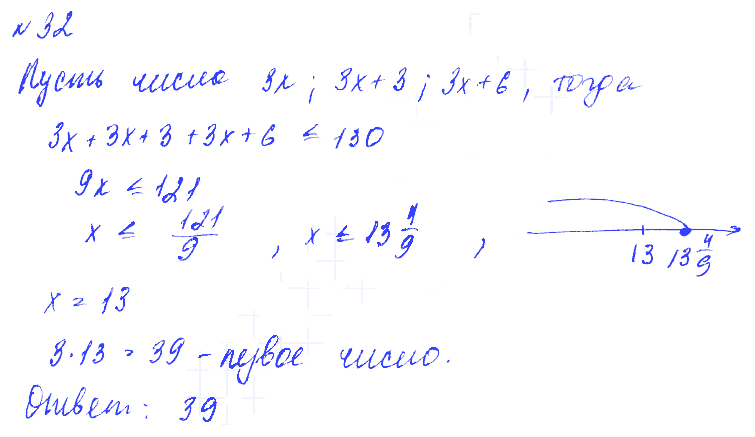 №32
Пусть число 3x; 3x+3; 3x+6, тогда
3x+3x+3+3x+6 ≤ 130
9x ≤ 121
x ≤ 121/9, x ≤ 13 4/9,
13 13 4/9
x = 13
3·13 = 39 – первое число.
Ответ: 39